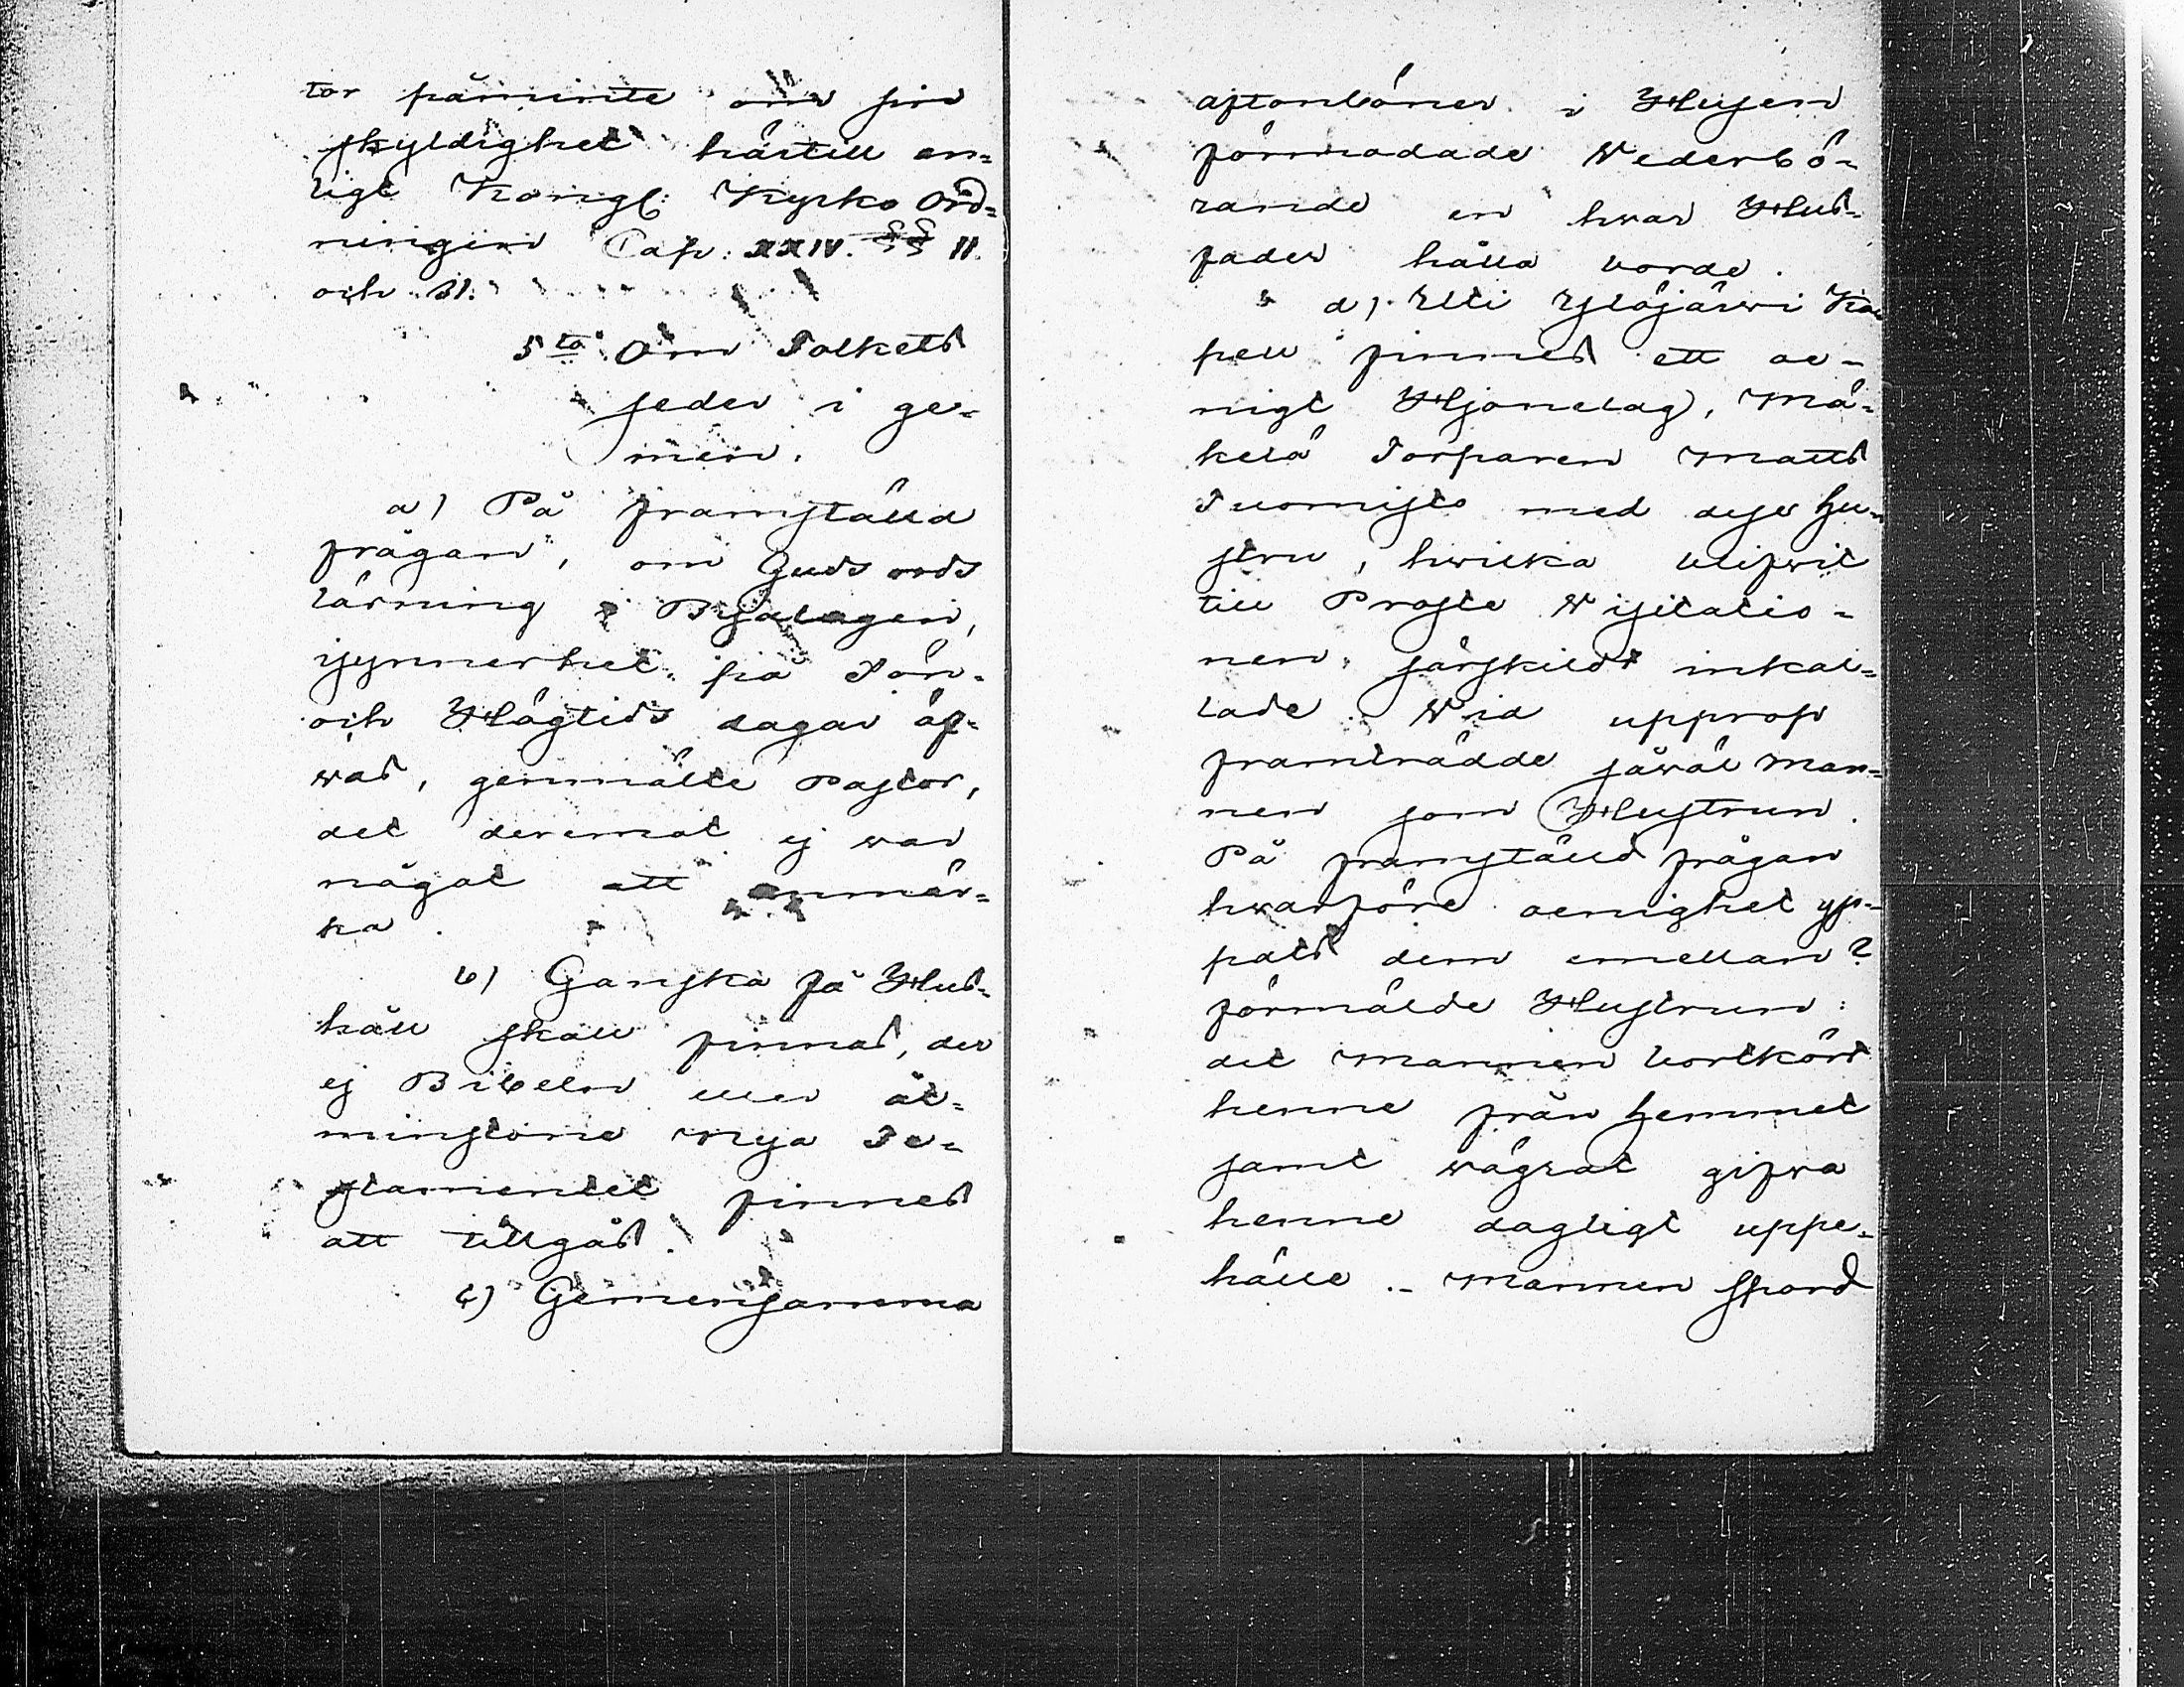 tor påminte om sin
skyldighet härtill en=
ligt Kongl: Kyrko Ord=
ningen Cap: XXIV. §§ 11.
och 31.
5to Om Folkets
seder i ge=
men.
a) På framstäld
frågan, om Guds ords
läsning i Byalagen,
isynnerhet på Sön-
och Högtids dagar öf=
was, genmälte Pastor,
det deremot ej war
något att anmär=
ka.
b) Ganska få Hus=
håll skall finnas, der
ej Bibeln eller åt=
minstone Nya Te=
stamentet finnes
att tillgås.
c) Gemensamma
aftonböner i Husen
förmodade Wederbö=
rande en hwar Hus=
fader hålla borde.
d) Uti Ylöjärwi Ka
pell finnes ett oe=
nigt Hjonelag, Mä=
kelä Torparen Matts
Tuomisto med dess Hu=
stru, hwilka blifwit
till Proste Wisitatio=
nen särskildt inkal=
lade. Wid upprop
framträdde såwäl Man=
nen som Hustrun.
På framstäld frågan
hwarföre oenighet yp=
pats dem emellan?
förmälde Hustrun:
det Mannen bortkört
henne från Hemmet
samt wägrat gifwa
henne dagligt uppe=
hälle. - Mannen spord